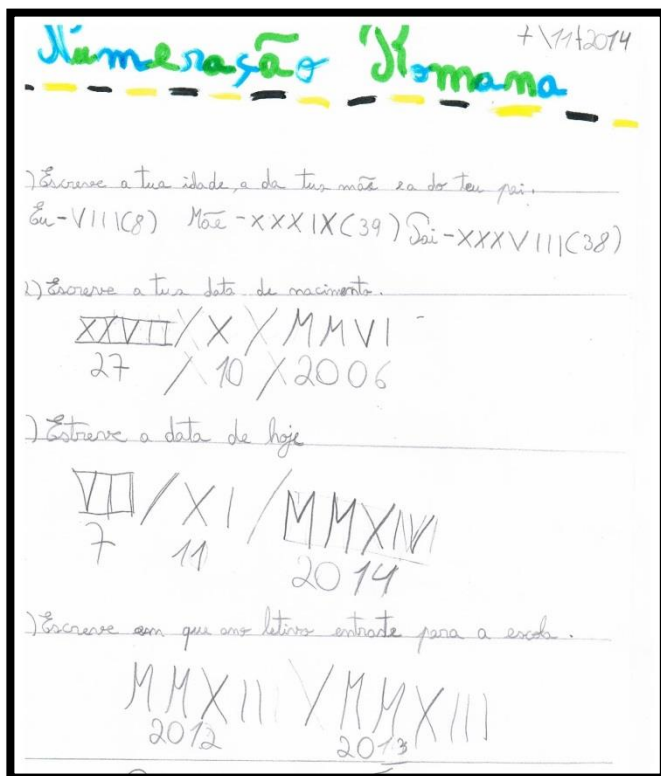 Numeração Romana
7\11\2014
)Escreve a tua idade, a da tua mãe e a do teu pai.
Eu-VIII(8) Mãe-XXXIX(39) Pai-XXXVIII(38)
2) Escreve a tua data de nacimento.
XXVII/X/MMVI
27/10/2006
)Estreve a data de hoje
VII/XI/MMXIV
7 11 2014
)Escreve em que ano letivo entraste para a escola.
MMXII/MMXIII
2012 2013